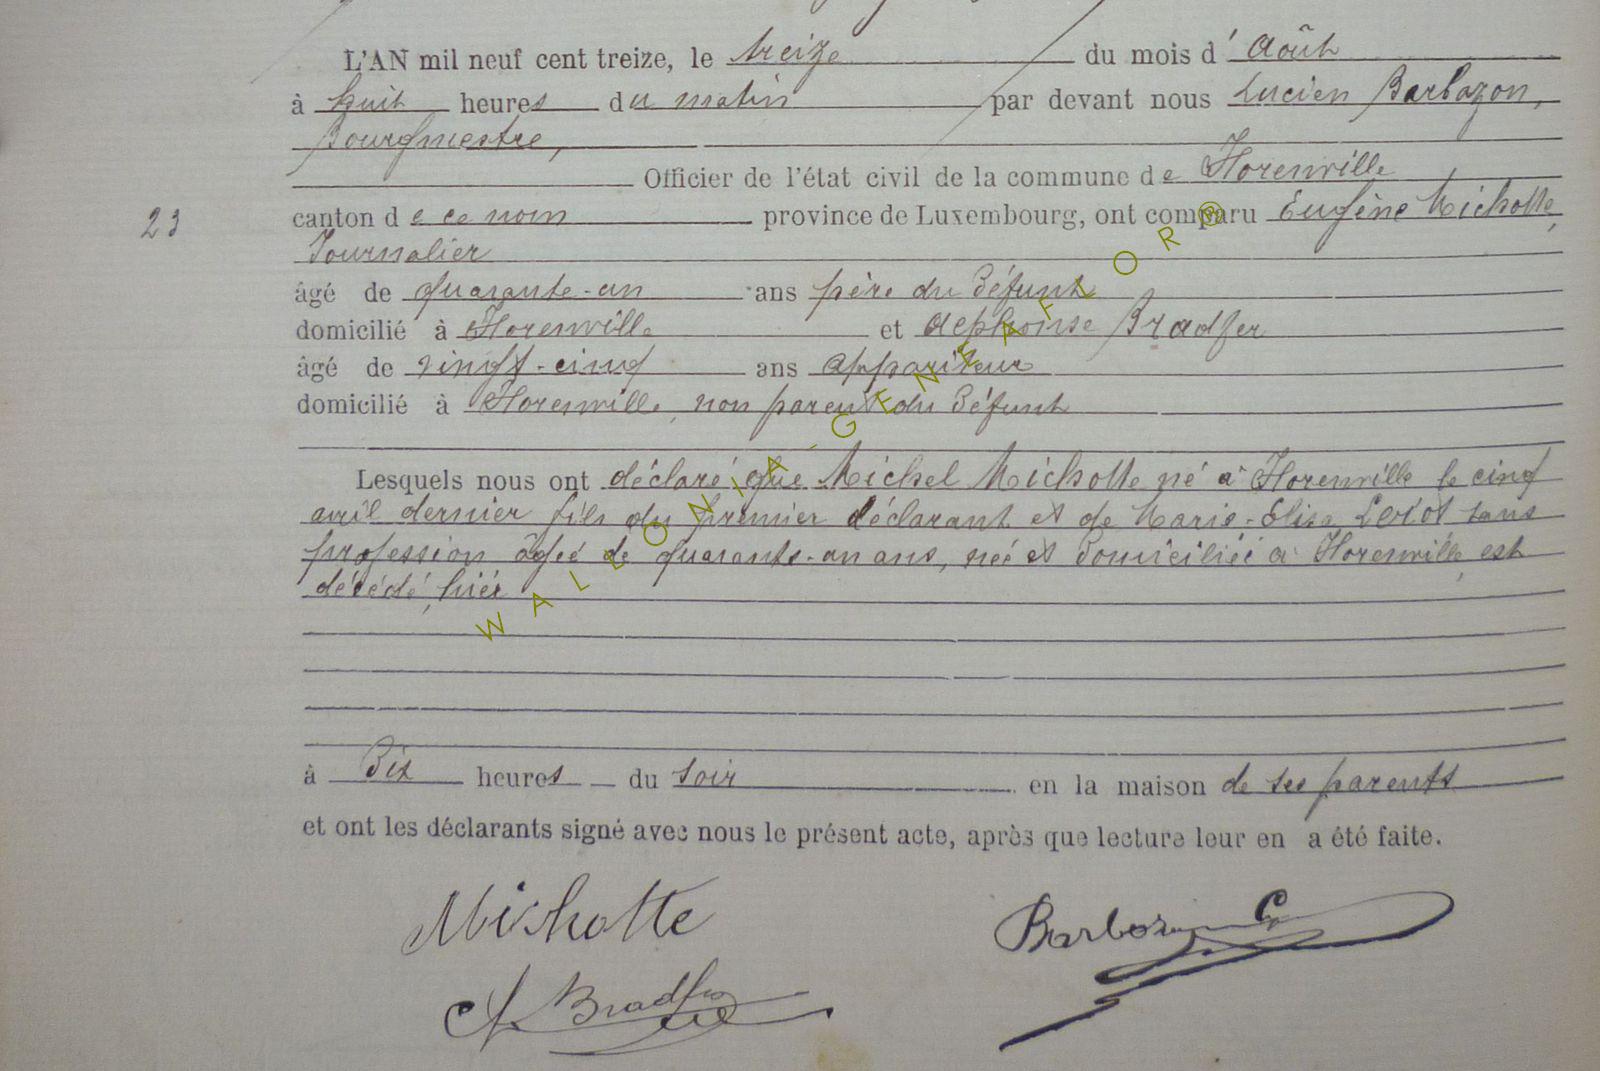 L'AN mil neuf cent treize, le treize du mois d' Août
à huit heures du matin par devant nous Lucien Barbazon,
Bourgmestre,
Officier de l'état civil de la commune de Florenville
23 canton de ce nom province de Luxembourg, ont comparu Eugène Michotte,
Journalier
âgé de quarante-un ans père du défunt
domicilié à Florenville et Alphonse Bradfer
âgé de vingt-cinq ans appariteur
domicilié à Florenville, non parent du défunt
Lesquels nous ont déclaré que Michel Michotte né à Florenville le cinq
avril dernier fils du premier déclarant et de Marie-Elisa sans
profession âgée de quarante-un ans, née et domiciliée à Florenville, est
décédé, hier
à Six heures du soir en la maison de ses parents
et ont les déclarants signé avec nous le présent acte, après que lecture leur en a été faite.
Michotte Barbazon
A. Bradfer
WALLONIA-GENEAFLOR®